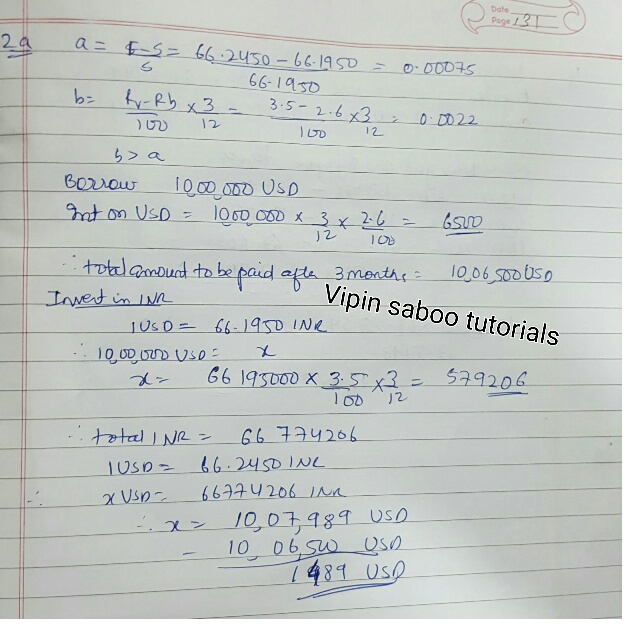 Date
Page 131
2a a = F-S/S = 66.2450-66.1950/66.1950 = 0.00075
b= Rv-Rb/100 × 3/12 = 3.5-2.6/100 × 3/12 = 0.0022
b > a
Borrow 10,00,000 USD
Int on USD = 10,00,000 × 3/12 × 2.6/100 = 6500
∴ total amount to be paid after 3 months = 10,06,500 USD
Invest in INR
Vipin saboo tutorials
1 USD = 66.1950 INR
∴ 10,00,000 USD = x
x = 66195000 × 3.5/100 × 3/12 = 579206
∴ total INR = 66774206
1 USD = 66.2450 INR
∴ x USD = 66774206 INR
∴ x = 10,07,989 USD
- 10,06,500 USD
1489 USD